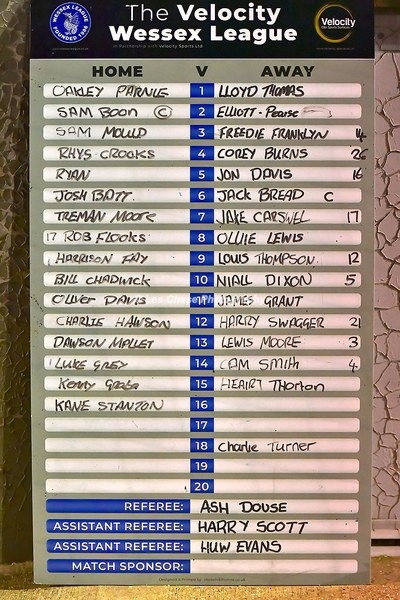 WESSEX LEAGUE
FOUNDED 1986
The Velocity
Wessex League
In Partnership with Velocity Sports Ltd
Velocity
HOME V AWAY
OAKLEY PARNIG 1 LLOYD THOMAS
SAM BOON C 2 ELLIOTT - Pearse
SAM MOULD 3 FREEDIE FRANKLYN 14
RHYS CROOKS 4 COREY BURNS 26
RYAN 5 JON DAVIS 16
JOSH BATT 6 JACK BREAD C
TREMAN MOORE 7 JAKE CARSWEL 17
17 ROB FLOOKS 8 OLLIE LEWIS
HARRISON FAY 9 LOUIS THOMPSON. 12
BILL CHADWICK 10 NIALL DIXON 5
OLIVER DAVIS 11 JAMES GRANT
CHARLIE HAWSON 12 HARRY SWAGGER 21
DAWSON MOLLET 13 LEWIS MOORE 3
LUKE GREY 14 CAM SMITH 4
Kenny 15 HEAIRT Thorton
KANE STANTON 16
17
18 Charlie Turner
19
20
REFEREE: ASH DOUSE
ASSISTANT REFEREE: HARRY SCOTT
ASSISTANT REFEREE: HUW EVANS
MATCH SPONSOR: